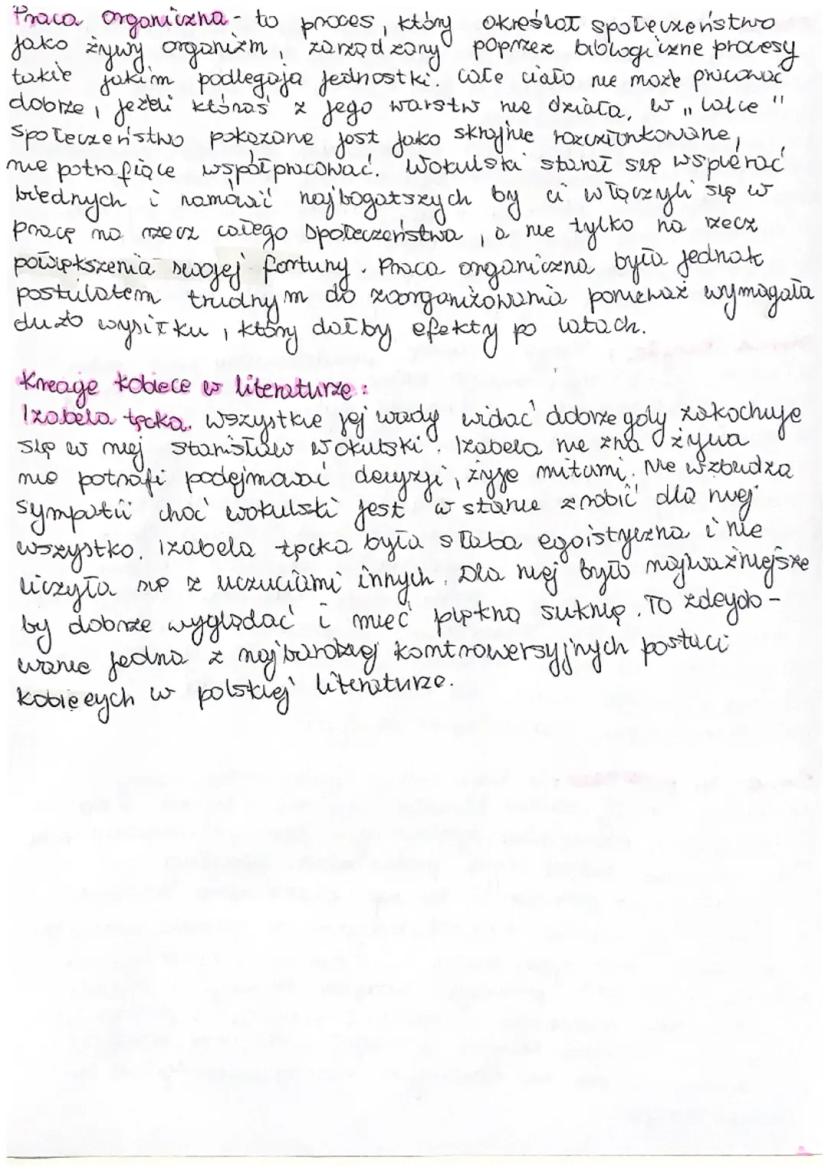 Praca organiczna - to proces, który określał społeczeństwo
jako żywy organizm, zarządzany poprzez biologiczne procesy
takie jakim podlegają jednostki. Całe ciało nie może pracować
dobrze, jeżeli któraś z jego warstw nie działa, w „Lalce"
społeczeństwo pokazane jest jako skrajnie rozczłonkowane,
nie potrafiące współpracować. Wokulski starał się wspierać
biednych i namówić najbogatszych by ci włączyli się w
pracę na rzecz całego społeczeństwa, a nie tylko na rzecz
powiększenia swojej fortuny. Praca organiczna była jednak
postulatem trudnym do zorganizowania ponieważ wymagała
dużo wysiłku, który dałby efekty po latach.
Kreacje kobiece w literaturze:
Izabela Łęcka. Wszystkie jej wady widać dobrze gdy zakochuje
się w niej Stanisław Wokulski. Izabela nie zna życia
nie potrafi podejmować decyzji, żyje mitami. Nie wzbudza
sympatii choć Wokulski jest w stanie zrobić dla niej
wszystko. Izabela Łęcka była słaba egoistyczna i nie
liczyła się z uczuciami innych. Dla niej było najważniejsze
by dobrze wyglądać i mieć piękną suknię. To zdeydo-
wanie jedna z najbardziej kontrowersyjnych postaci
kobiecych w polskiej literaturze.